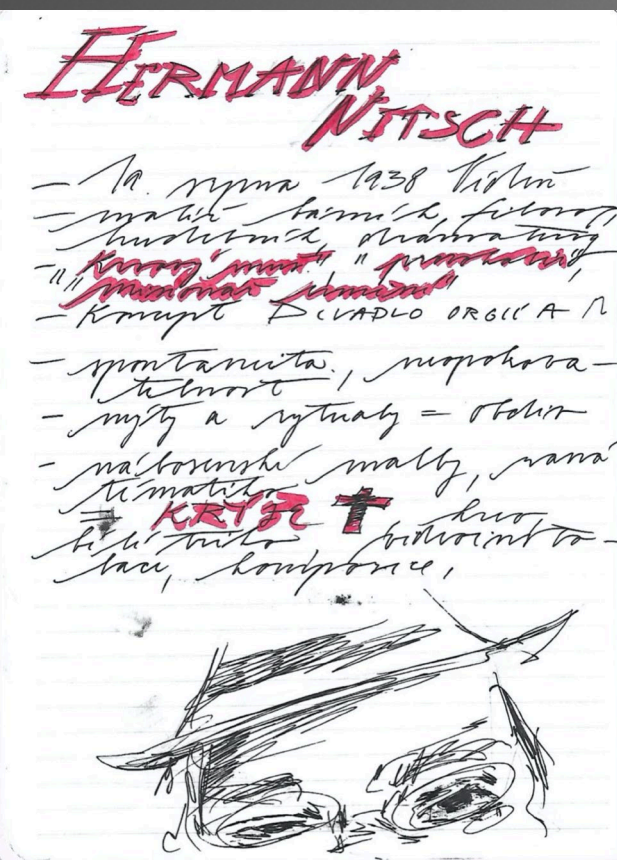 HERMANN
NITSCH
- 19. srpna 1938 Vídeň
- malíř básník, filozof,
hudebník dramaturg
- "Krvavý
- Koncept DIVADLO ORGIÍ A M
- spontaneita, neopakova-
telnost
- mýty a rytualy = obdiv
- náboženské malby, raná
tématika
= KRYŽE
krev
bílé triko
lace, kompozice,